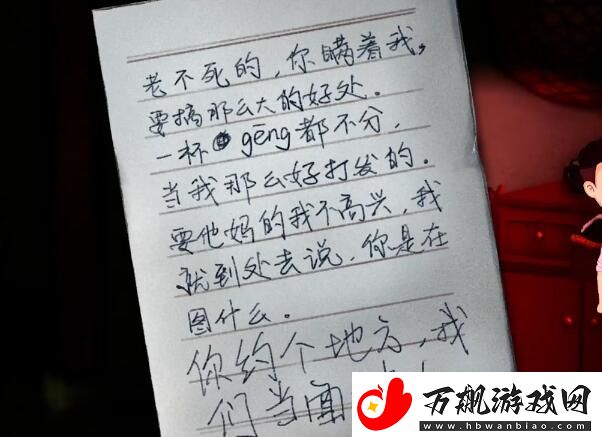 老不死的，你瞒着我，
要搞那么大的好处．
一杯gēng都不分，
当我那么好打发的．
要他妈的我不高兴，我
就到处去说，你是在
图什么。
你约个地方，我
们当面
万飙游戏网
www.hbwanbiao.com